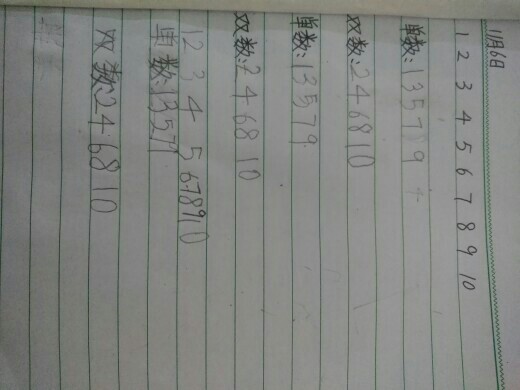 11月6日
1 2 3 4 5 6 7 8 9 10
单数:13579
双数:246810
单数:13579
双数:246810
12345678910
单数:13579
双数:246810